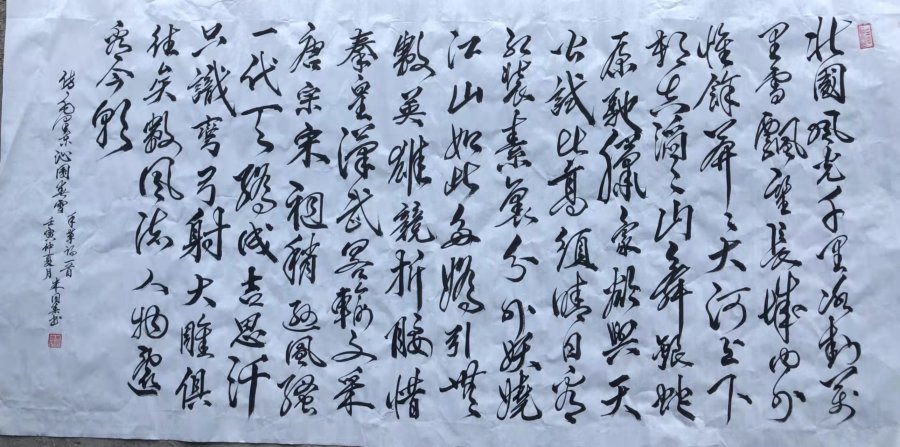 北國風光千里冰封萬
里雪飄望長城内外
惟餘莽々大河上下
頓失滔々山舞銀蛇
原馳臘象欲與天
公試比高須晴日看
紅裝素裹分外妖嬈
江山如此多嬌引無
數英雄競折腰惜
秦皇漢武略輸文采
唐宗宋祖稍遜風騷
一代天驕成吉思汗
只識彎弓射大雕俱
往矣數風流人物還
看今朝
沁園春雪
壬寅仲夏月